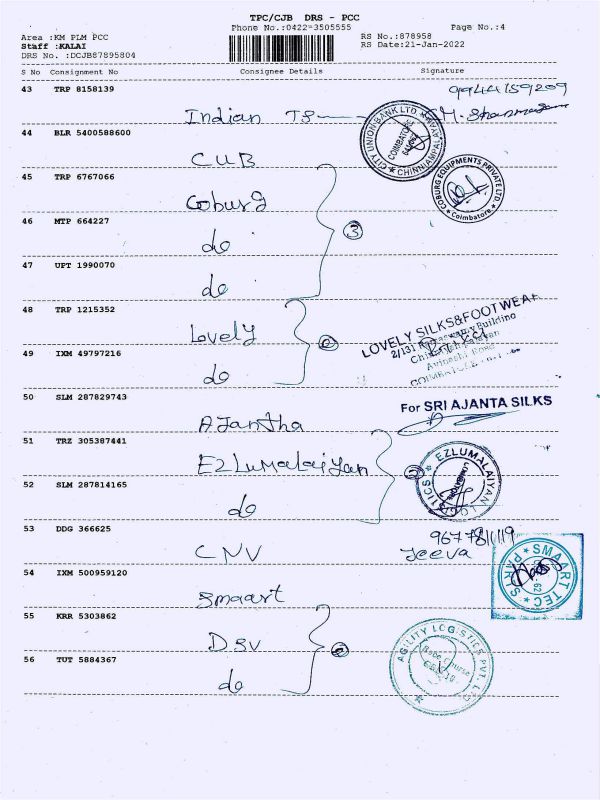 TPC/CJB DRS - PCC
Phone No.:0422-3505555 Page No.:4
Area :KM PLM PCC RS No.:878958
Staff :KALAI RS Date:21-Jan-2022
DRS No. :DCJB87895804
S No Consignment No Consignee Details Signature
43 TRP 8158139 9944159209
Indian TS
CITY UNION BANK LTD
COIMBATORE
44 BLR 5400588600
CUB
45 TRP 6767066
Coburg
COBURG EQUIPMENTS PRIVATE LTD
Coimbatore
46 MTP 664227
do
3
47 UPT 1990070
do
48 TRP 1215352
Lovely
LOVELY SILKS&FOOTWEAR
49 IXM 49797216
do
50 SLM 287829743
AJantha
For SRI AJANTA SILKS
51 TRZ 305387441
EZLUMalaiyan
EZLUMALAIYAN LOGISTICS
52 SLM 287814165
do
53 DDG 366625
CNV
Jeeva
54 IXM 500959120
Smaart
SMAART TEC PARTS
62
55 KRR 5303862
DSV
AGILITY LOGISTICS PVT. LTD
Race course
56 TUT 5884367
do